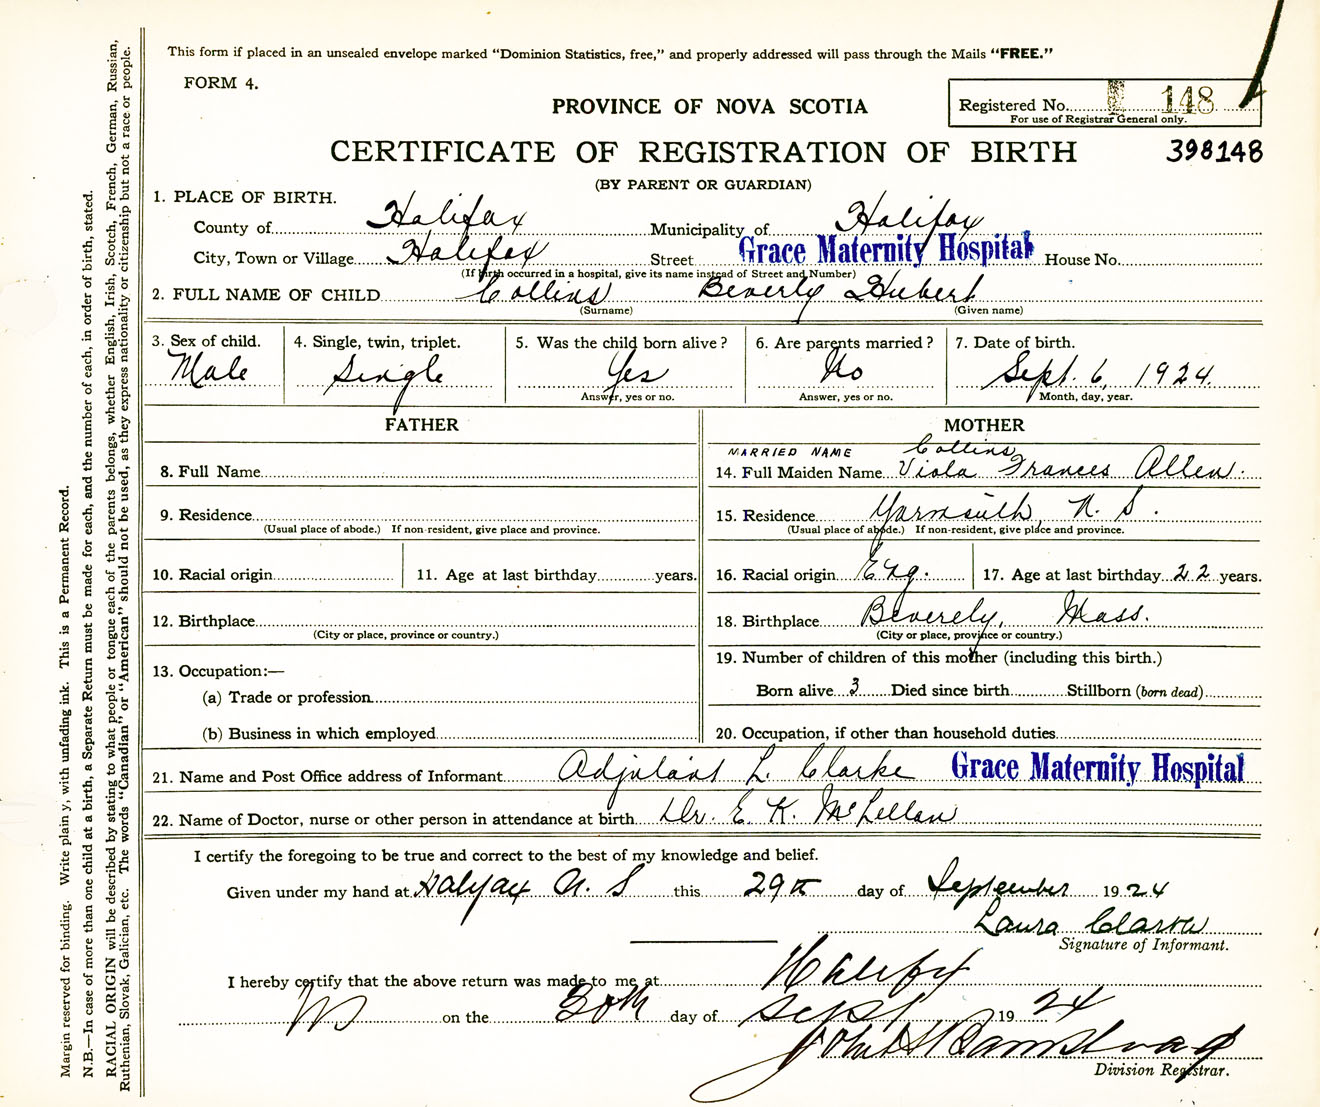 This form if placed in an unsealed envelope marked "Dominion Statistics, free," and properly addressed will pass through the Mails "FREE."
FORM 4.
PROVINCE OF NOVA SCOTIA
Registered No. 148
For use of Registrar General only.
CERTIFICATE OF REGISTRATION OF BIRTH 398148
(BY PARENT OR GUARDIAN)
1. PLACE OF BIRTH.
County of Halifax Municipality of Halifax
City, Town or Village Halifax Street Grace Maternity Hospital House No.
(If birth occurred in a hospital, give its name instead of Street and Number)
2. FULL NAME OF CHILD Collins Beverly Hubert
(Surname) (Given name)
3. Sex of child. 4. Single, twin, triplet. 5. Was the child born alive? 6. Are parents married? 7. Date of birth.
Male Single Yes No Sept. 6, 1924.
Answer, yes or no. Answer, yes or no. Month, day, year.
FATHER
8. Full Name
9. Residence
(Usual place of abode.) If non-resident, give place and province.
10. Racial origin 11. Age at last birthday years.
12. Birthplace
(City or place, province or country.)
13. Occupation:—
(a) Trade or profession
(b) Business in which employed
MOTHER
MARRIED NAME Collins
14. Full Maiden Name Viola Frances Allen.
15. Residence Yarmouth, N. S.
(Usual place of abode.) If non-resident, give place and province.
16. Racial origin Eng. 17. Age at last birthday 22 years.
18. Birthplace Beverely, Mass.
(City or place, province or country.)
19. Number of children of this mother (including this birth.)
Born alive 3 Died since birth Stillborn (born dead)
20. Occupation, if other than household duties
21. Name and Post Office address of Informant Adjutant L. Clarke Grace Maternity Hospital
22. Name of Doctor, nurse or other person in attendance at birth Dr. E. K. McLellan
I certify the foregoing to be true and correct to the best of my knowledge and belief.
Given under my hand at Halifax N. S this 29th day of September 1924
Laura Clarke
Signature of Informant.
I hereby certify that the above return was made to me at Halifax
NS on the 30th day of Sept 1924
John
Division Registrar.
Margin reserved for binding. Write plainly, with unfading ink. This is a Permanent Record.
N.B.—In case of more than one child at a birth, a Separate Return must be made for each, and the number of each, in order of birth, stated.
RACIAL ORIGIN will be described by stating to what people or tongue each of the parents belongs, whether English, Irish, Scotch, French, German, Russian,
Ruthenian, Slovak, Galician, etc. The words "Canadian" or "American" should not be used, as they express nationality or citizenship but not a race or people.